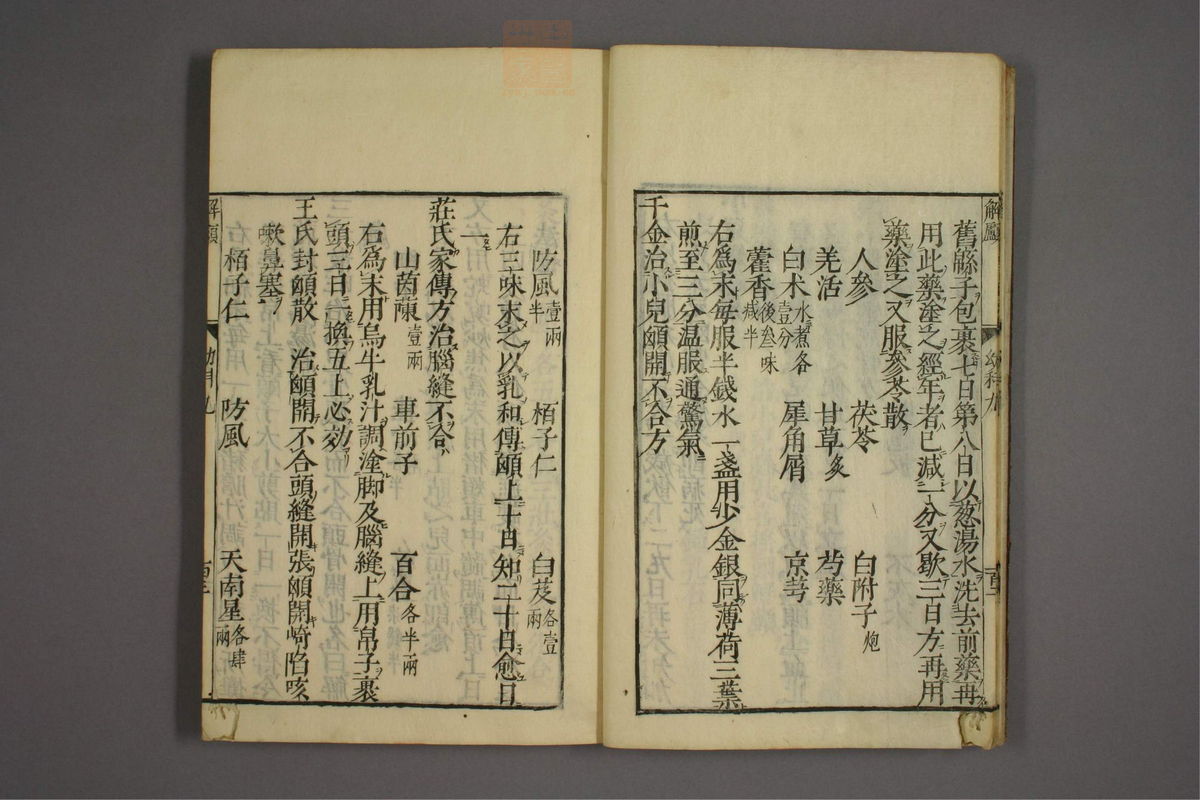 解顱
幼科九
舊緜子包裹七日第八日以葱湯水洗去前藥再
用此藥塗之經年者已減一分又歇三百方再用
藥塗之又服參苓散
人參 茯苓 白附子炮
羌活 甘草炙 芍藥
白术水煮各壹分 犀角屑 京芎
藿香後叁味減半
右爲末每服半錢水一盞用少金銀同薄荷三葉
煎至三分温服通驚氣
千金治小兒顖開不合方
防風壹兩半 栢子仁 白芨各壹兩
右三味末之以乳和傅顖上十日知二十日愈日
一
莊氏家傳方治腦縫不合
山茵蔯壹兩 車前子 百合各半兩
右爲末用烏牛乳汁調塗脚及腦縫上用帛子裹
頭三日一換五上必効
王氏封顖散 治顖開不合頭縫開張顖開崎陷咳
嗽鼻塞
栢子仁 防風 天南星各肆兩
解顱